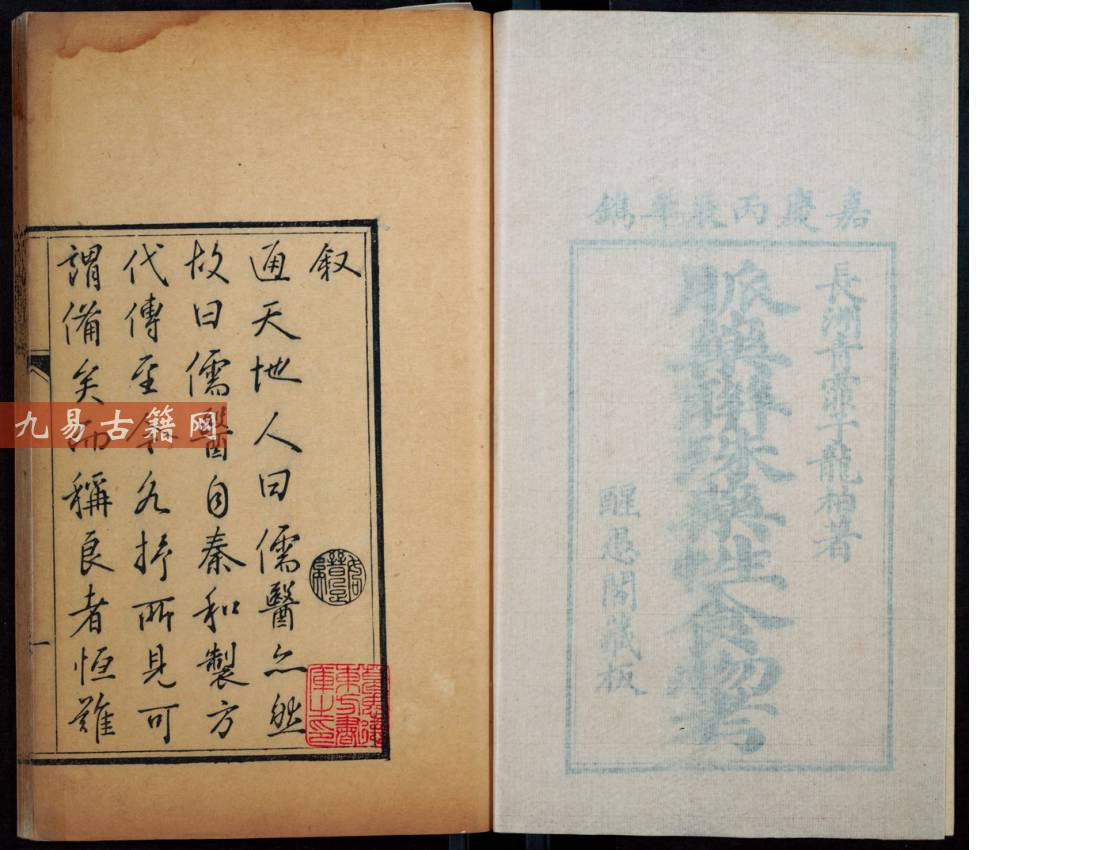 嘉慶丙辰年鐫
長洲青霏子龍柏著
脈藥聯珠藥性食物考
醒愚閣藏板
叙
通天地人曰儒醫之然
故曰儒醫自秦和製方
代傳至今各抒所見可
謂備矣而稱良者恒難
一
九易古籍网